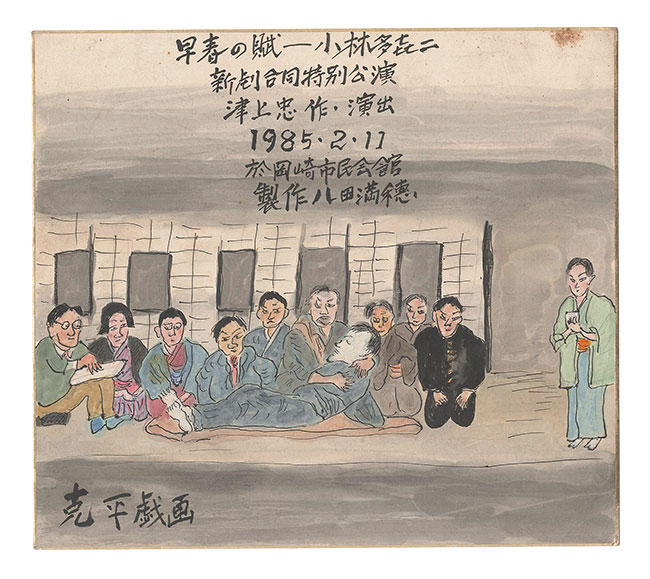 早春の賦―小林多喜二
新劇合同特別公演
津上忠 作・演出
1985・2・11
於岡崎市民会館
製作八田満穂
克平戯画